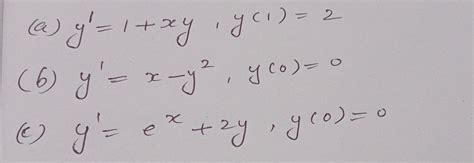 (a) y' = 1 + xy , y(1) = 2
(b) y' = x - y² , y(0) = 0
(c) y' = eˣ + 2y , y(0) = 0